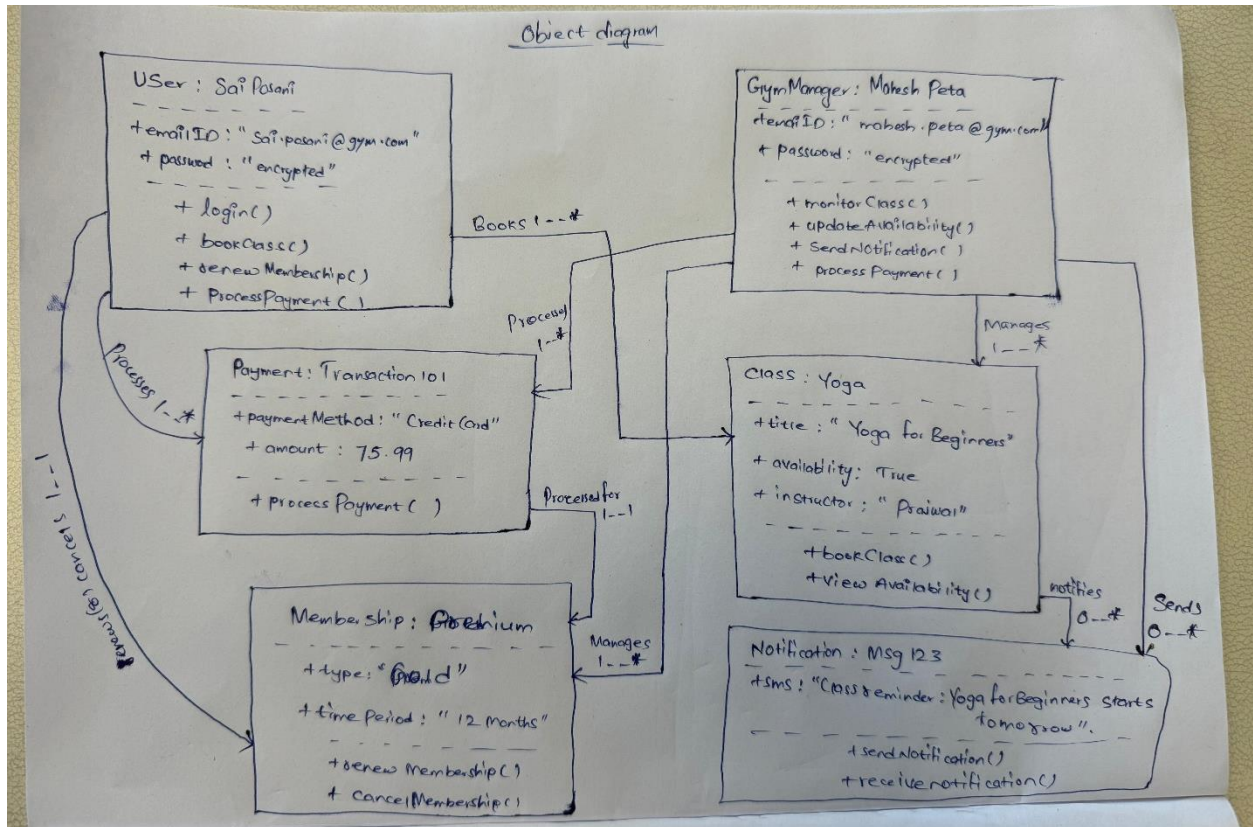 Object diagram
User : Sai Pasani
+emailID : "Sai.pasani@gym.com"
+ password : "encrypted"
+ login()
+ bookClass()
+ renewMembership()
+ ProcessPayment()
GymManager : Mahesh Peta
+emailID : "mahesh.peta@gym.com"
+ password : "encrypted"
+ monitorClass()
+ updateAvailability()
+ SendNotification()
+ processPayment()
Books 1--*
Processes 1--*
Processed
1--*
Manages
1--*
Payment : Transaction 101
+paymentMethod : "Credit Card"
+ amount : 75.99
+ processPayment()
Class : Yoga
+title : "Yoga for Beginners"
+ availability : True
+ instructor : "Prajwal"
+bookClass()
+view Availability()
Processed for
1--1
renews(or) cancels 1--1
Membership : Premium
+type : "Gold"
+time Period : "12 months"
+renew Membership()
+ cancelMembership()
Manages
1--*
notifies
0--*
Sends
0--*
Notification : Msg 123
+sms : "Class reminder : Yoga for Beginners starts
tomorrow".
+sendNotification()
+receivenotification()